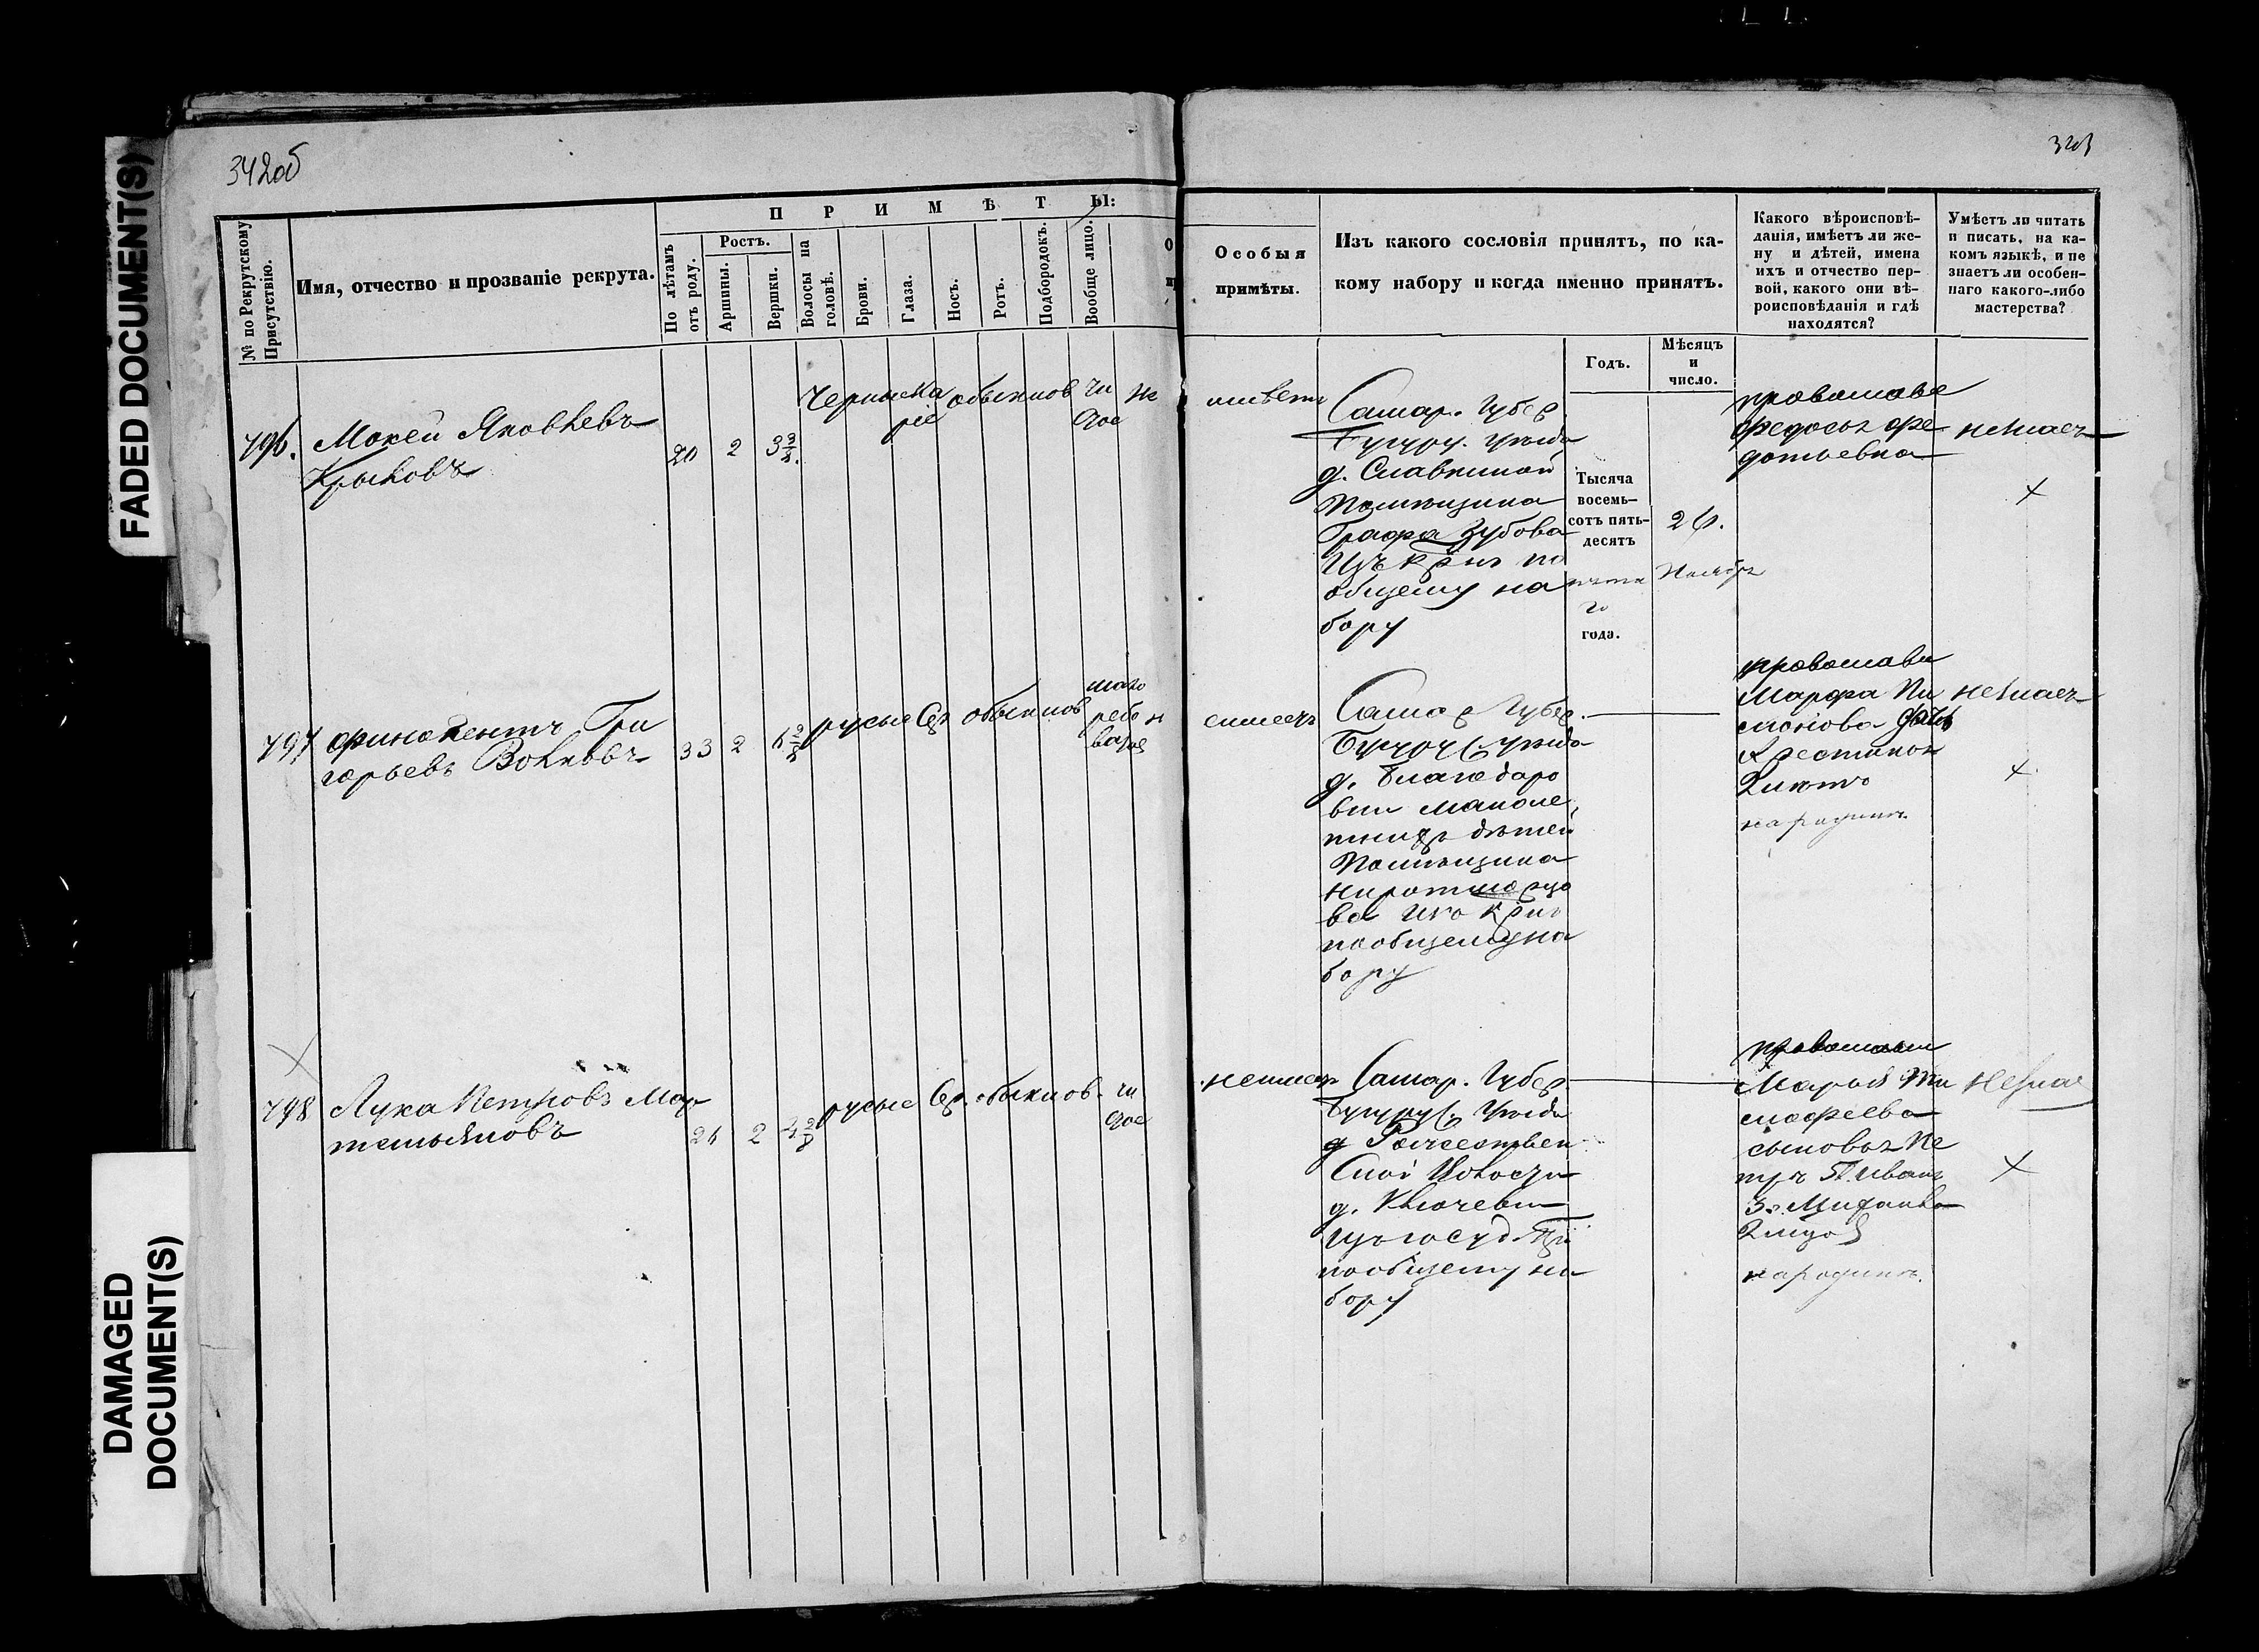 342об
FADED DOCUMENT(S)
DAMAGED
DOCUMENT(S)
№ по Рекрутскому
Присутствію.
Имя, отчество и прозваніе рекрута.
ПРИМѢТЫ:
По лѣтамъ
отъ роду.
Ростъ.
Аршины.
Вершки.
Волосы на
головѣ.
Брови.
Глаза.
Носъ.
Ротъ.
Подбородокъ.
Вообще лицо.
Особыя
примѣты.
Изъ какого сословія принятъ, по ка-
кому набору и когда именно принятъ.
Какого вѣроисповѣ-
данія, имѣетъ ли же-
ну и дѣтей, имена
ихъ и отчество пер-
вой, какого они вѣ-
роисповѣданія и гдѣ
находятся?
Умѣетъ ли читать
и писать, на ка-
комъ языкѣ, и не
знаетъ ли особен-
наго какого-либо
мастерства?
Годъ.
Мѣсяцъ
и
число.
796.
Мокей Яковлевъ
Крыловъ
20
2
3 3/8
Черные
Ка
ріе
обыкнов
чи
стое
не
имѣетъ
Самар. Губер
Бугуру. уѣзда
д. Славкиной
Помѣщика
Графа Зубова
Изъ крнъ по
общему на
бору
Тысяча
восемь-
сотъ пять-
десятъ
пята
го
года.
26.
Ноябрь
православ
Федосья Фе
дотьевна
незнаетъ
797
Финогентъ Гри
горьевъ Волковъ
33
2
русые
Сер
обыкнов
мало
ребо
ватое
н
еимеетъ
Самар Губер.
Бугурус. уѣзда
д. Благодаро
вки малоле
тнихъ дѣтей
Помѣщика
по общему на
бору
православ
Марфа
2 лѣтъ
на родинѣ
незнаетъ
798
Лука Петровъ Мар
темьяновъ
26
2
4 2/8
русые
Сер.
обыкнов.
чи
стое
неимеет
Самар. Губер.
Бугурус. Уѣзда
Рожчествен
ской Волости
д. Ключевки
по общему на
бору
православ
Марья Ти
мофеева
сыновья Пе
тръ 5л. Иванъ
3х. Михаила
2 года
на родинѣ.
незнае